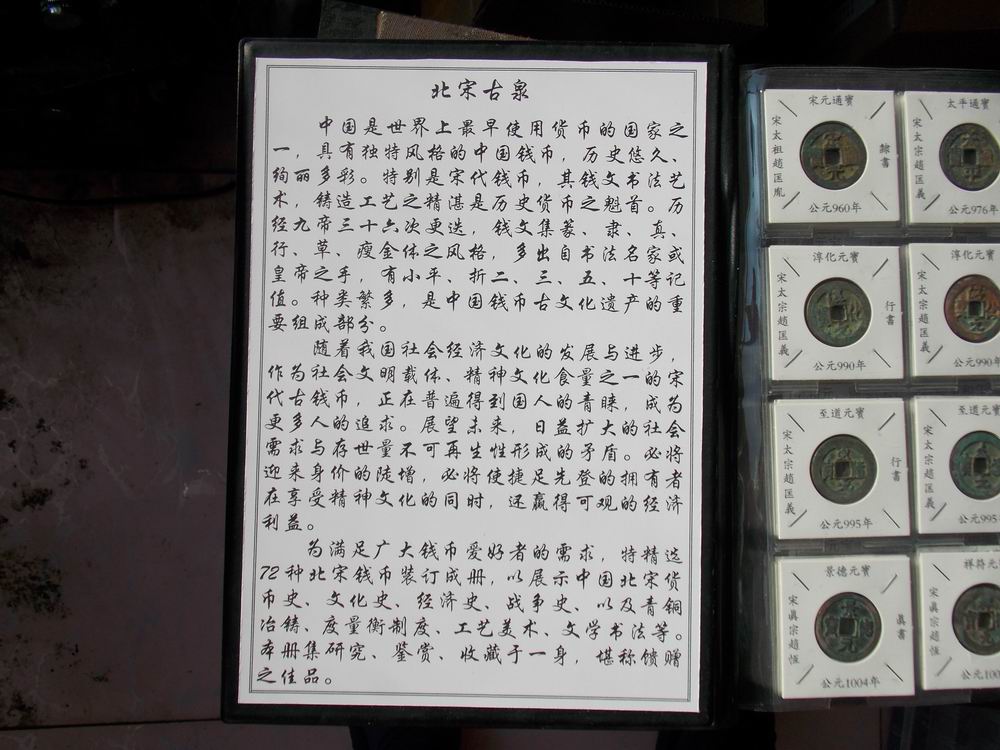 北宋古泉
中国是世界上最早使用货币的国家之
一，具有独特风格的中国钱币，历史悠久、
绚丽多彩。特别是宋代钱币，其钱文书法艺
术，铸造工艺之精湛是历史货币之魁首。历
经九帝三十六次更迭，钱文集篆、隶、真、
行、草、瘦金体之风格，多出自书法名家或
皇帝之手，有小平、折二、三、五、十等记
值。种类繁多，是中国钱币古文化遗产的重
要组成部分。
随着我国社会经济文化的发展与进步，
作为社会文明载体、精神文化食量之一的宋
代古钱币，正在普遍得到国人的青睐，成为
更多人的追求。展望未来，日益扩大的社会
需求与存世量不可再生性形成的矛盾。必将
迎来身价的陡增，必将使捷足先登的拥有者
在享受精神文化的同时，还赢得可观的经济
利益。
为满足广大钱币爱好者的需求，特精选
72种北宋钱币装订成册，以展示中国北宋货
币史、文化史、经济史、战争史、以及青铜
冶铸、度量衡制度、工艺美术、文学书法等。
本册集研究、鉴赏、收藏于一身，堪称馈赠
之佳品。
宋元通寶
宋太祖趙匡胤
隸書
公元960年
太平通寶
宋太宗趙匡義
公元976年
淳化元寶
宋太宗趙匡義
行書
公元990年
淳化元寶
宋太宗趙匡義
公元990年
至道元寶
宋太宗趙匡義
行書
公元995年
至道元寶
宋太宗趙匡義
公元995
景德元寶
宋真宗趙恒
真書
公元1004年
祥符元
宋真宗趙恒
公元100